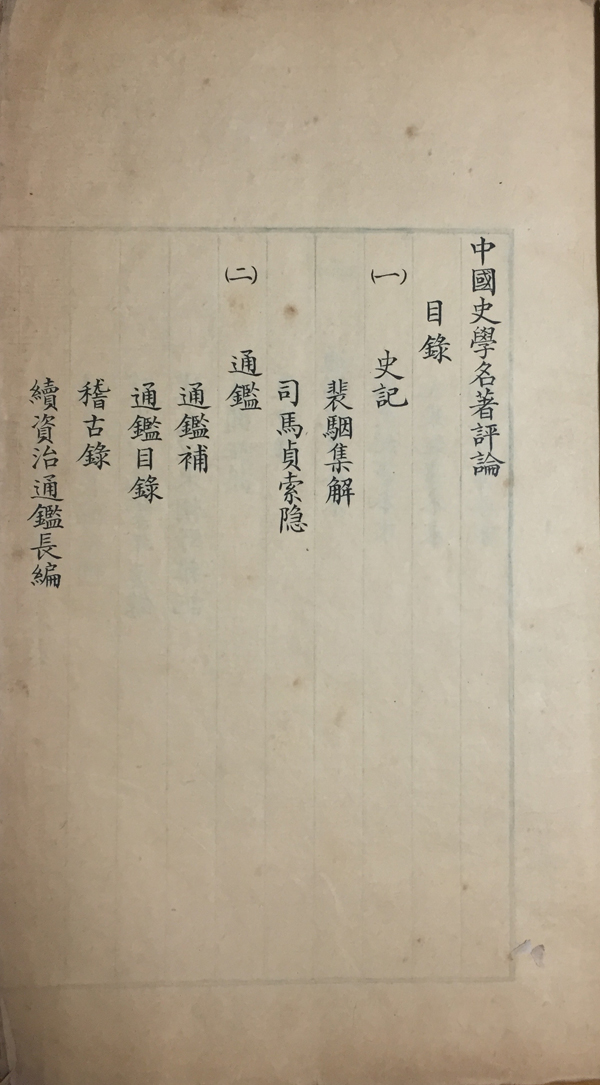 中國史學名著評論
目錄
㈠ 史記
裴駰集解
司馬貞索隐
㈡ 通鑑
通鑑補
通鑑目錄
稽古錄
續資治通鑑長編